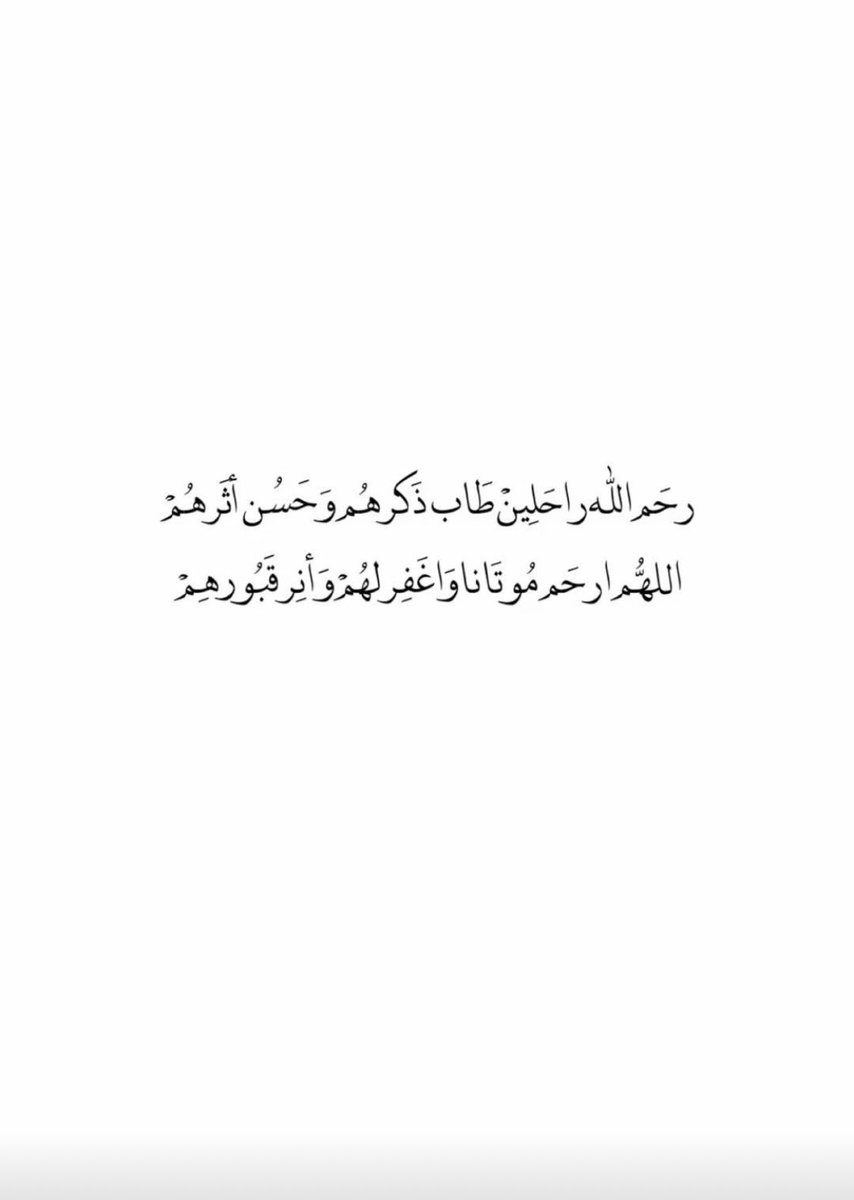 رحَم اللّٰه راحَلِينْ طَاب ذَكرهُم وَحَسُن أثَرهُمْ
اللهُّم ارحَم مُوتَانا وَاغَفِر لهُمْ وَأنِر قَبُورهِمْ